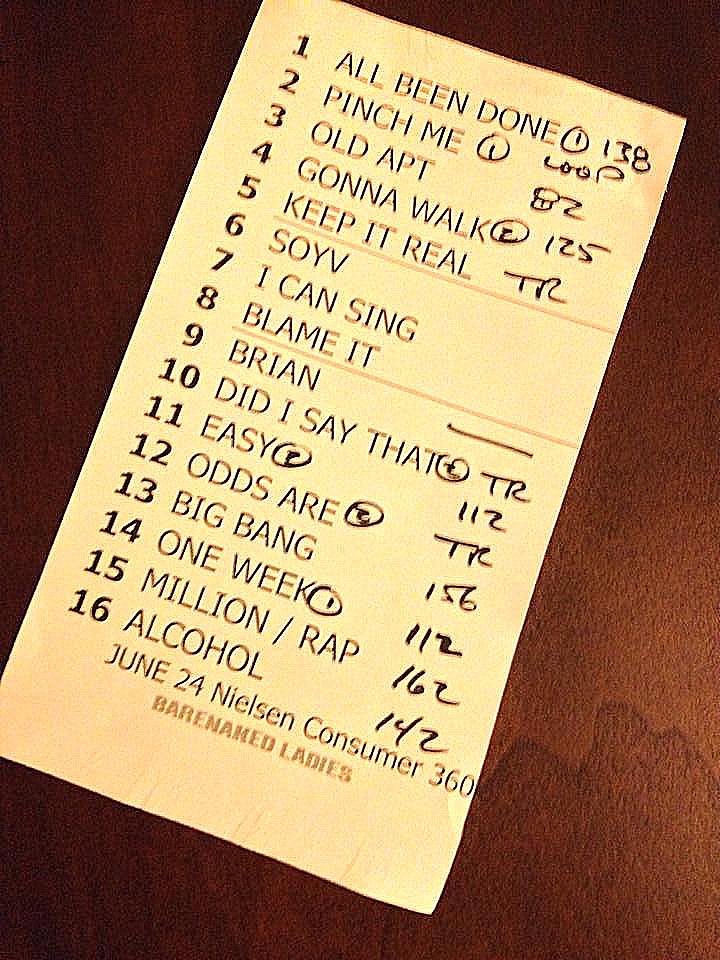 1 ALL BEEN DONE ① 138
2 PINCH ME ① LOOP
3 OLD APT 82
4 GONNA WALK ② 125
5 KEEP IT REAL TR
6 SOYV
7 I CAN SING
8 BLAME IT
9 BRIAN
10 DID I SAY THAT TR
11 EASY ② 112
12 ODDS ARE ② TR
13 BIG BANG 156
14 ONE WEEK ① 112
15 MILLION / RAP 162
16 ALCOHOL 142
JUNE 24 Nielsen Consumer 360
BARENAKED LADIES